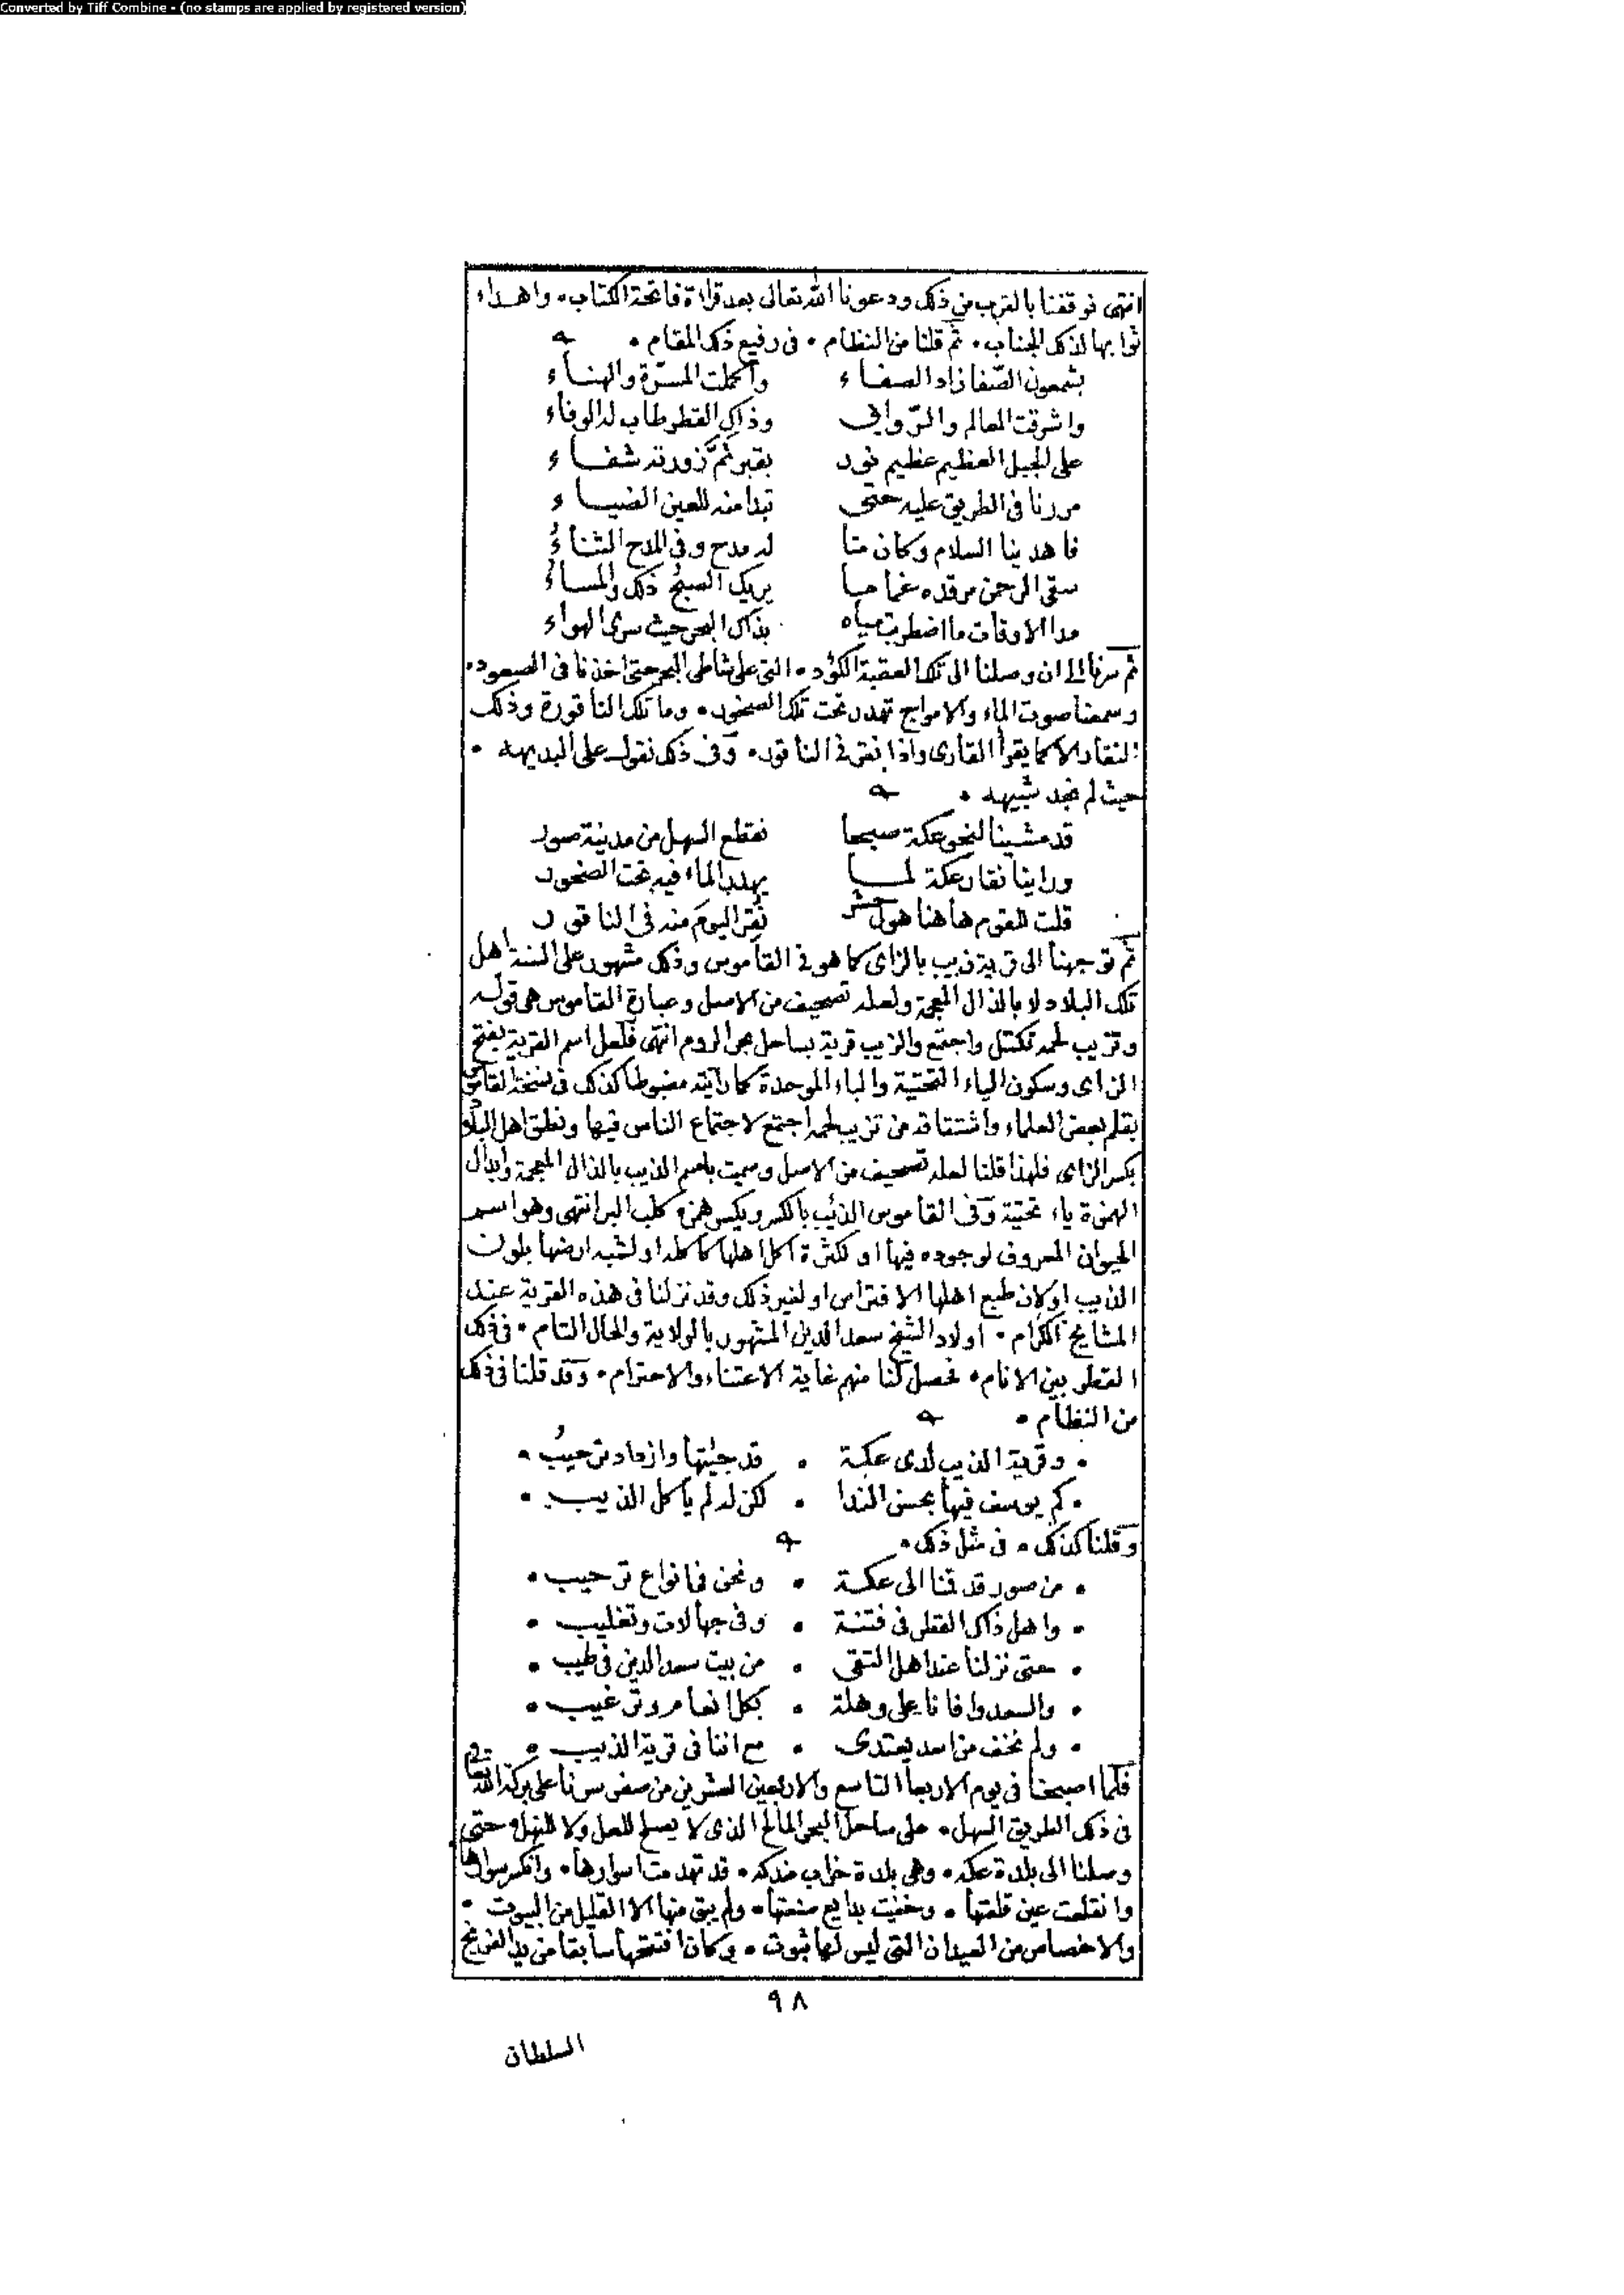 Converted by Tiff Combine - (no stamps are applied by registered version)
انتهى فوقفنا بالقرب من ذلك ودعونا الله تعالى بعد قراءة فاتحة الكتاب • واهداء
ثوابها لذلك الجناب • ثم قلنا من النظام • فى رفيع ذلك المقام •
بشمعون الصّفا زاد الصفاء وأكملت المسرّة والهناء
واشرقت المعالم والرّوابى وذاك القطر طاب له الوفاء
على الجبل العظيم عظيم نور بقبر ثمّ زورته شفاء
مررنا فى الطريق عليه حتى تبدا منه للعين الضياء
فاهدينا السلام وكان منا له مدح وفى المدح الثناءُ
سقى الرحمن مرقده غماما يريك الصبحُ ذلك والمساءُ
مدا الاوقات ما اضطربت مياه بذاك البحر حيث سرى الهواء
ثم سرنا الى ان وصلنا الى تلك العقبة الكؤد • التى على شاطى البحر حتى اخذنا فى الصعود •
وسمعنا صوت الماء والامواج تهدر تحت تلك الصخور • وما تلك الناقورة وذلك
النقار الا كما يقرأ القارى واذا نقر فى الناقور • وفى ذلك نقول على البديهه •
حيث لم نجد شبيهه •
قد مشينا لنحو عكة صبحا نقطع السهل من مدينة صور
وراينا نقار عكة لما يهدر الماء فيه تحت الصخور
قلت للقوم هاهنا هول حشر نُقر اليوم منه فى الناقور
ثم توجهنا الى قرية زيب بالزاى كما هو فى القاموس وذلك مشهور على السنة اهل
تلك البلاد لا بالذال المعجمة ولعله تصحيف من الاصل وعبارة القاموس هى قوله
وتزيب لحمه تكتل واجتمع والزيب قرية بساحل بحر الروم انتهى فلعل اسم القرية بفتح
الزاى وسكون الياء التحتية والباء الموحدة كما رايته مضبوطا كذلك فى نسخة القاموس
بقلم بعض العلماء واشتقاقه من تزيب لحمه اجتمع لاجتماع الناس فيها ونطق اهل البلاد
بكسر الزاى فلهذا قلنا لعله تصحيف من الاصل وسميت باسم الذيب بالذال المعجمة وابدال
الهمزة ياء تحتية وفى القاموس الذئب بالكسر ويكسر همزه كلب البر انتهى وهو اسم
الحيوان المعروف لوجوده فيها او لكثرة اكل اهلها كاكله او لشبه ارضها بلون
الذيب او لان طبع اهلها الافتراس او لغير ذلك وقد نزلنا فى هذه القرية عند
المشايخ الكرام • اولاد الشيخ سعد الدين المشهور بالولاية والحال التام • فى ذلك
القطر بين الانام • فحصل لنا منهم غاية الاعتناء والاحترام • وقد قلنا فى ذلك
من النظام •
• وقرية الذيب لدى عكة • قد جيئتها وازداد ترحيبُ •
• كم يوسف فيها بحسن الندا • لكن له لم ياكل الذيب •
وقلنا كذلك • فى مثل ذلك •
• من صور قد قمنا الى عكة • ونحن فى انواع ترحيب •
• واهل ذاك القطر فى فتنة • وفى جهالات وتغليب •
• حتى نزلنا عند اهل التقى • من بيت سعد الدين فى طيب •
• والسعد وافانا على وهلة • بكل انعام وترغيب •
• ولم نخف من اسد يعتدى • مع اننا فى قرية الذيب •
فلما اصبحنا فى يوم الاربعا التاسع والاربعين العشرين من صفر سرنا على بركة الله تعالى
فى ذلك الطريق السهل • على ساحل البحر المالح الذى لا يصلح للعل ولا للنهل • حتى
وصلنا الى بلدة عكه • وهى بلدة خراب مندكه • قد تهدمت اسوارها • وانكسر سوارها
وانقلعت عين قلعتها • وخفيت بدايع صنعتها • ولم يبق منها الا القليل من البيوت •
والاخصاص من العيدان التى ليس لها ثبوت • وكان افتتحها سابقا من يد الفرنج
٩٨
السلطان